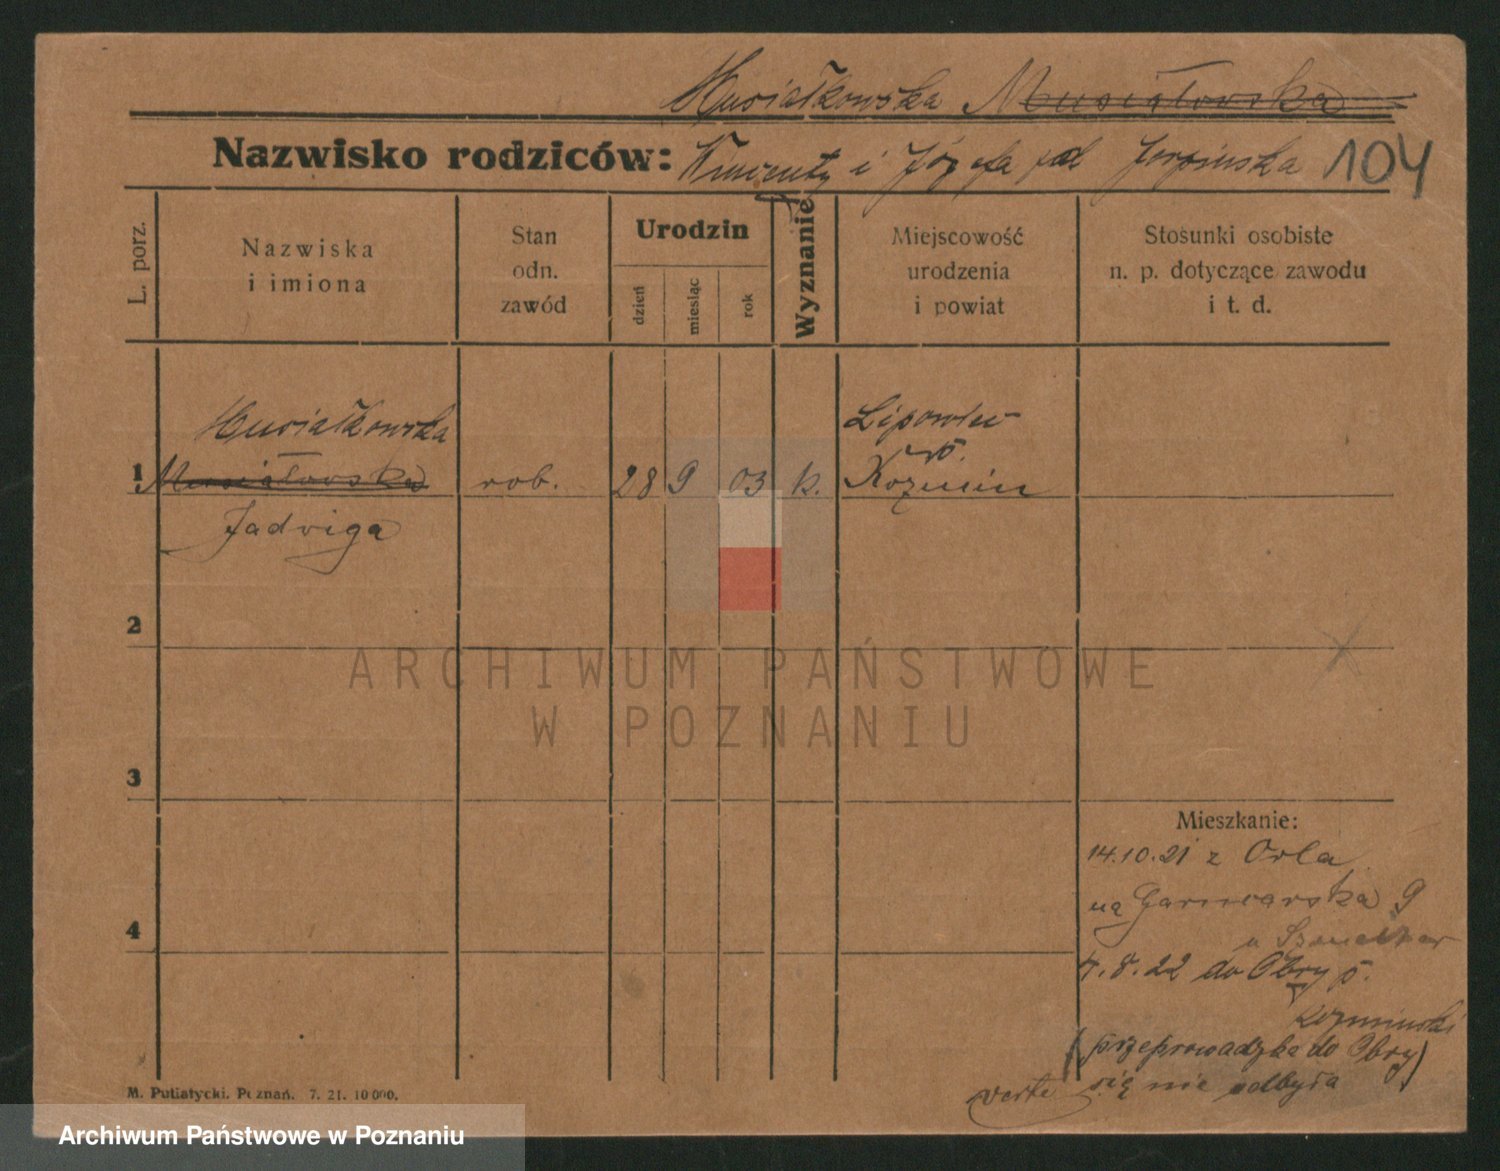 Musiałkowska Musiałowska
Nazwisko rodziców: Wincenty i Józefa 104
L. porz.
Nazwiska
i imiona
Stan
odn.
zawód
Urodzin
dzień
miesiąc
rok
Wyznanie
Miejscowość
urodzenia
i powiat
Stosunki osobiste
n. p. dotyczące zawodu
i t. d.
Musiałkowska
1 Musiałowska rob. 28 9 03 k.
Jadwiga
Lipowiec
Kozmin
2
ARCHIWUM PAŃSTWOWE
W POZNANIU
3
4
Mieszkanie:
14.10.21 z Orla
na Garncarska 9
u
4.8.22 do Obry p.
Kozminski
(przeprowadzka do Obry)
się nie odbyła
verte
M. Putiatycki. Poznań. 7. 21. 10000.
Archiwum Państwowe w Poznaniu